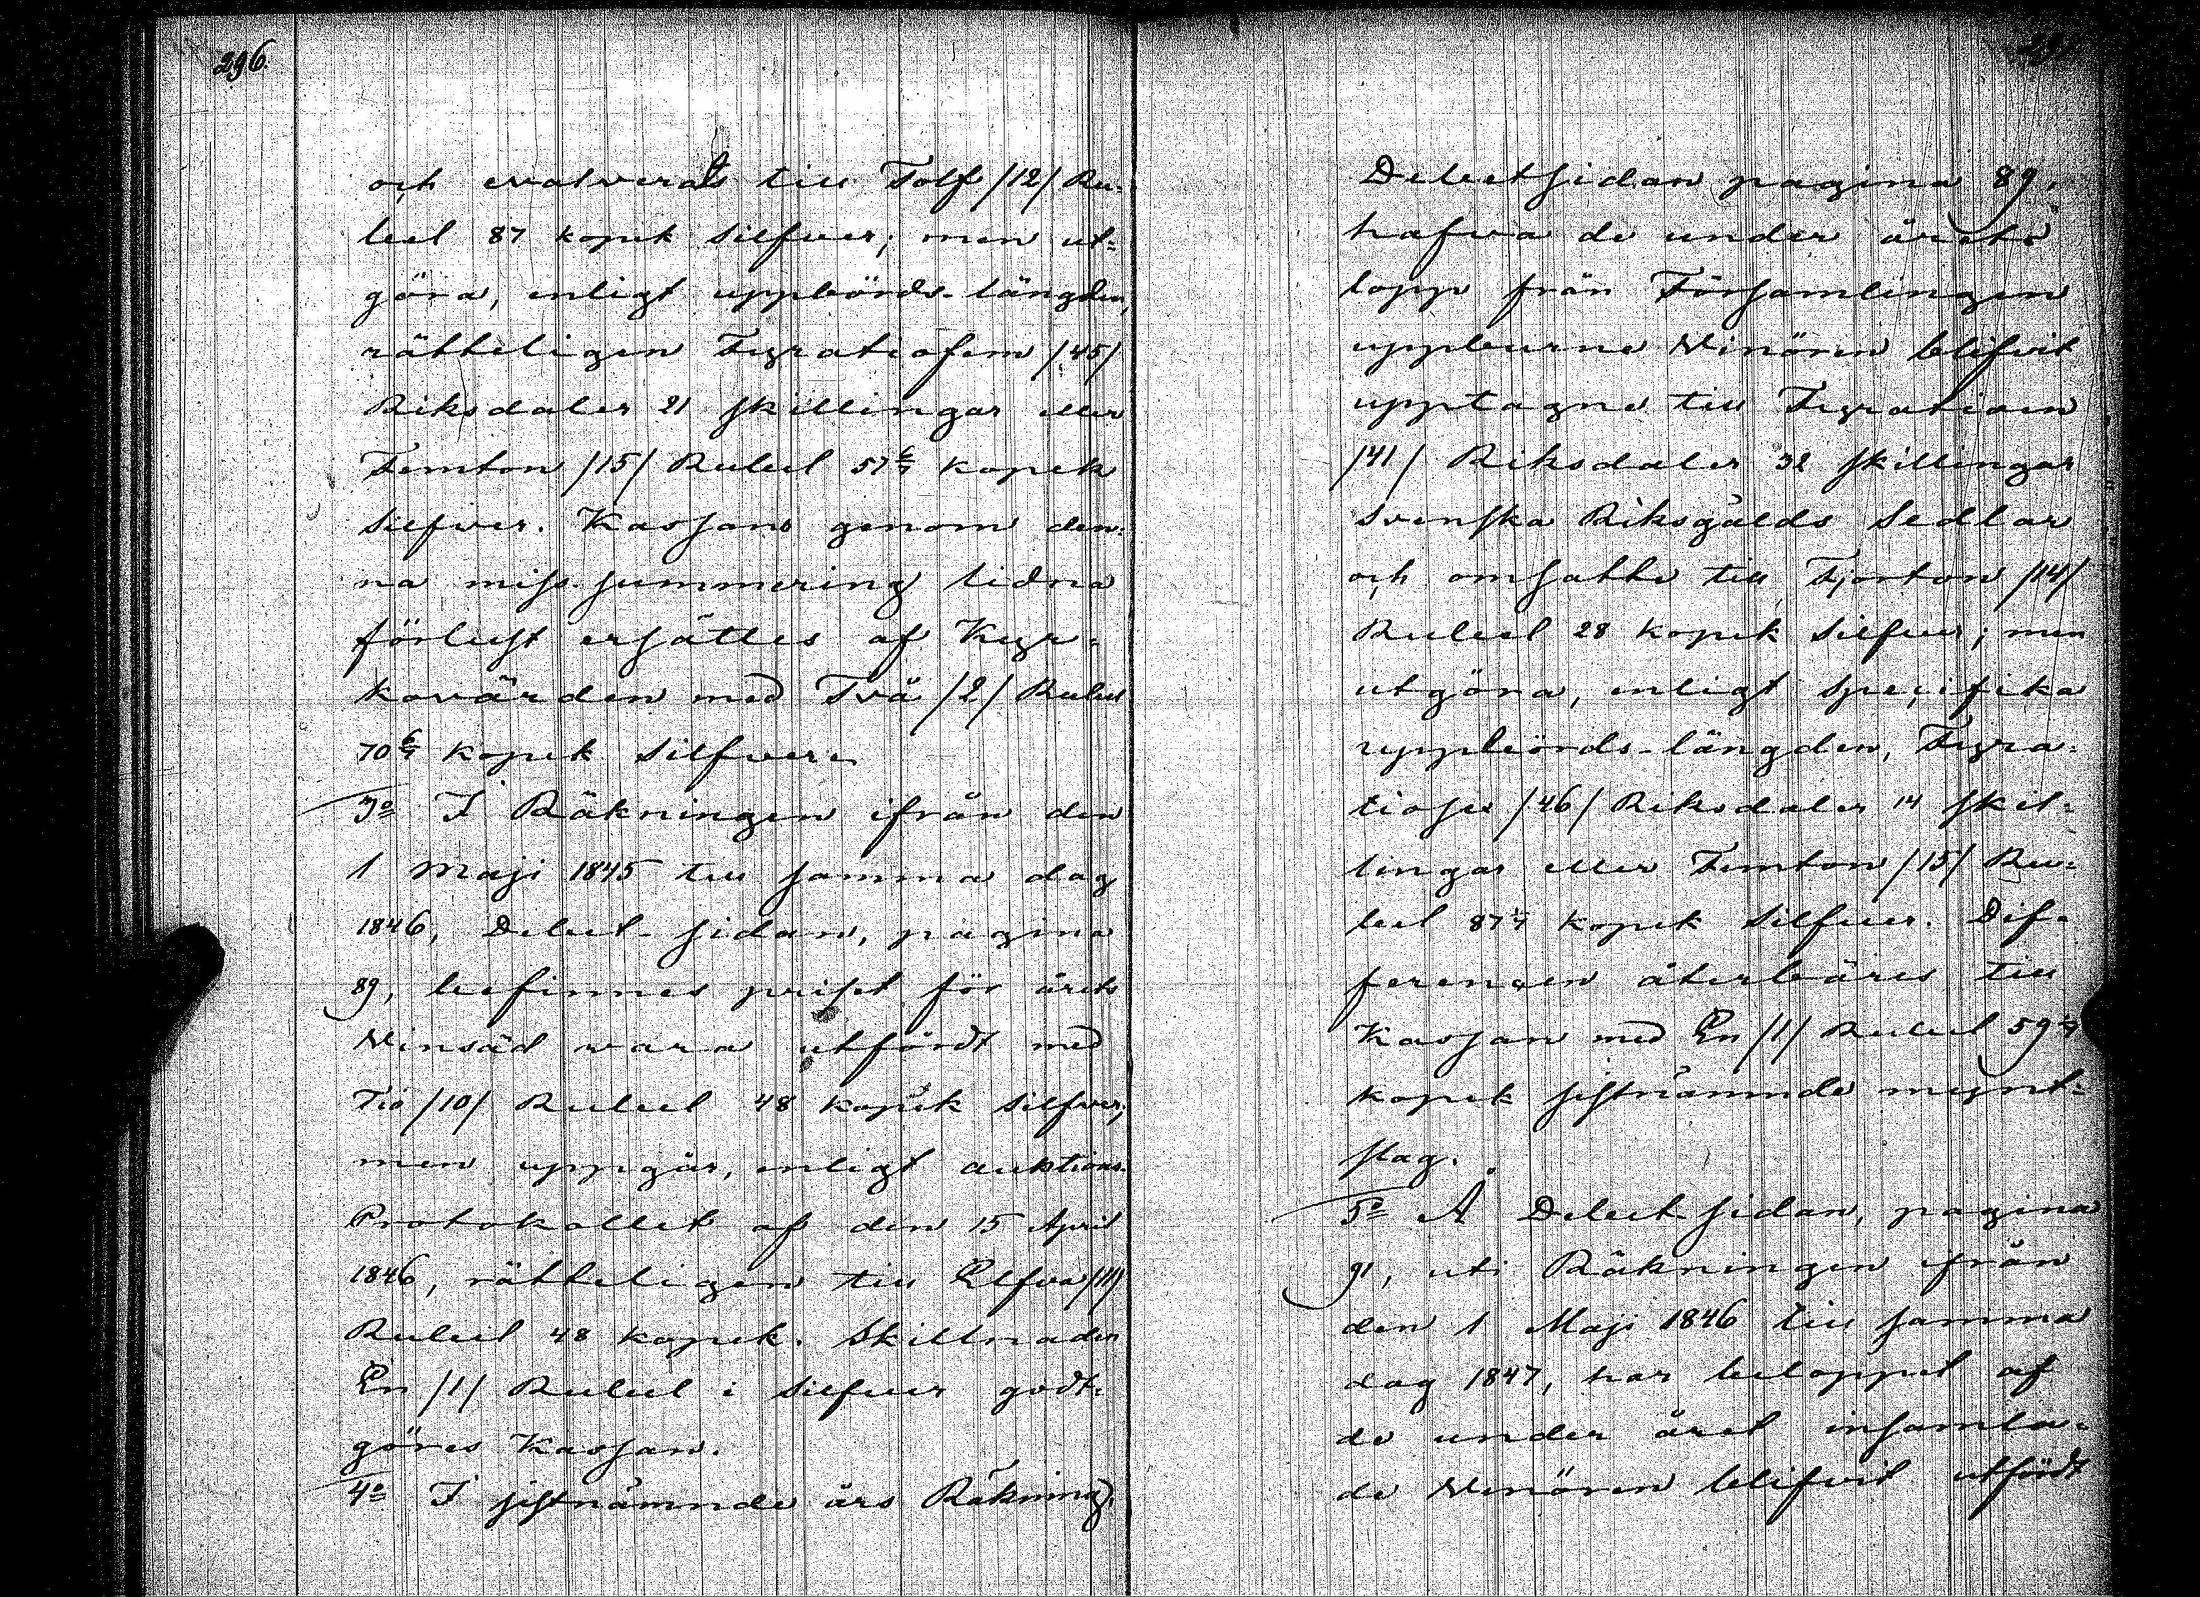 296.
och evalverats till Tolf /12/ Ru-
bel 87 kopek Silfver; men ut=
göra, enligt uppbörds-längden,
rätteligen Fyratiofem /45/
Riksdaler 21 skillingar eller
Femton /15/ Rubel 57 6/7 kopek
Silfver. Kassans genom den-
na miss summering lidna
förlust ersättes af Kyr-
kovärden med Två /2/ Rubel
70 6/7 kopek Silfver.
3o I Räkningen ifrån den
1 Maji 1845 till samma dag
1846, Debet-sidan, pagina
89, befinnes priset för årets
Vinsäd vara utfördt med
Tio /10/ Rubel 48 kopek Silfver;
men uppgår, enligt auktions-
Protokollet af den 15 April
1846, rätteligen till Elfva /11/
Rubel 48 kopek. Skillnaden
En /1/ Rubel i Silfver godt-
göres Kassan.
4o I sistnämnde års Räkning,
Debetsidan pagina 89,
hafva de under årets
lopp från Församlingen
uppburne Vinören blifvit
upptagne till Fyratioen
/41/ Riksdaler 32 skillingar
Svenska Riksgälds Sedlar
och omsatte till Fjorton /14/
Rubel 28 kopek Silfver; men
utgöra, enligt specifika
uppbörds-längden, Fyra-
tiosex /46/ Riksdaler 14 skil-
lingar eller Femton /15/ Ru-
bel 87 kopek Silfver. Dif-
ferencen återbäres till
Kassan med En /1/ Rubel 59
kopek sistnämnde mynt-
slag.
5o Å Debet-sidan, pagina
91, uti Räkningen ifrån
den 1 Maji 1846 till samma
dag 1847, har beloppet af
de under året insamla-
de Vinören blifvit utfördt